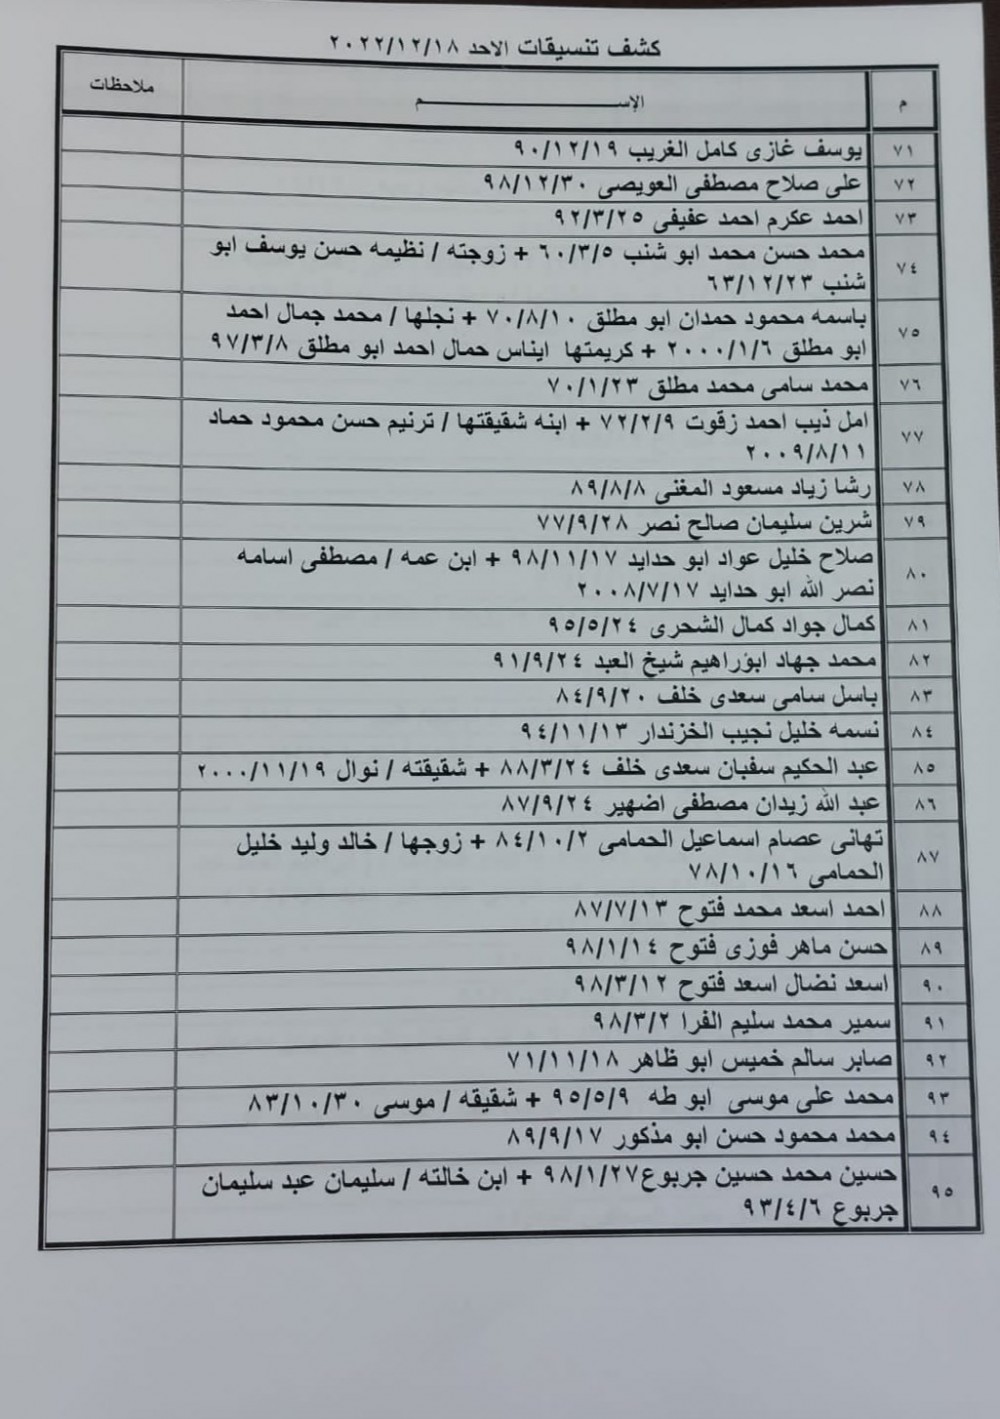 كشف تنسيقات الاحد ٢٠٢٢/١٢/١٨
م الإســـــــــــــــم ملاحظات
٧١ يوسف غازى كامل الغريب ٩٠/١٢/١٩
٧٢ على صلاح مصطفى العويصى ٩٨/١٢/٣٠
٧٣ احمد عكرم احمد عفيفى ٩٢/٣/٢٥
٧٤ محمد حسن محمد ابو شنب ٦٠/٣/٥ + زوجته / نظيمه حسن يوسف ابو
شنب ٦٣/١٢/٢٣
٧٥ باسمه محمود حمدان ابو مطلق ٧٠/٨/١٠ + نجلها / محمد جمال احمد
ابو مطلق ٢٠٠٠/١/٦ + كريمتها ايناس حمال احمد ابو مطلق ٩٧/٣/٨
٧٦ محمد سامى محمد مطلق ٧٠/١/٢٣
٧٧ امل ذيب احمد زقوت ٧٢/٢/٩ + ابنه شقيقتها / ترنيم حسن محمود حماد
٢٠٠٩/٨/١١
٧٨ رشا زياد مسعود المغنى ٨٩/٨/٨
٧٩ شرين سليمان صالح نصر ٧٧/٩/٢٨
٨٠ صلاح خليل عواد ابو حدايد ٩٨/١١/١٧ + ابن عمه / مصطفى اسامه
نصر الله ابو حدايد ٢٠٠٨/٧/١٧
٨١ كمال جواد كمال الشحرى ٩٥/٥/٢٤
٨٢ محمد جهاد ابؤراهيم شيخ العبد ٩١/٩/٢٤
٨٣ باسل سامى سعدى خلف ٨٤/٩/٢٠
٨٤ نسمه خليل نجيب الخزندار ٩٤/١١/١٣
٨٥ عبد الحكيم سفبان سعدى خلف ٨٨/٣/٢٤ + شقيقته / نوال ٢٠٠٠/١١/١٩
٨٦ عبد الله زيدان مصطفى اضهير ٨٧/٩/٢٤
٨٧ تهانى عصام اسماعيل الحمامى ٨٤/١٠/٢ + زوجها / خالد وليد خليل
الحمامى ٧٨/١٠/١٦
٨٨ احمد اسعد محمد فتوح ٨٧/٧/١٣
٨٩ حسن ماهر فوزى فتوح ٩٨/١/١٤
٩٠ اسعد نضال اسعد فتوح ٩٨/٣/١٢
٩١ سمير محمد سليم الفرا ٩٨/٣/٢
٩٢ صابر سالم خميس ابو ظاهر ٧١/١١/١٨
٩٣ محمد على موسى ابو طه ٩٥/٥/٩ + شقيقه / موسى ٨٣/١٠/٣٠
٩٤ محمد محمود حسن ابو مذكور ٨٩/٩/١٧
٩٥ حسين محمد حسين جربوع٩٨/١/٢٧ + ابن خالته / سليمان عبد سليمان
جربوع ٩٣/٤/٦